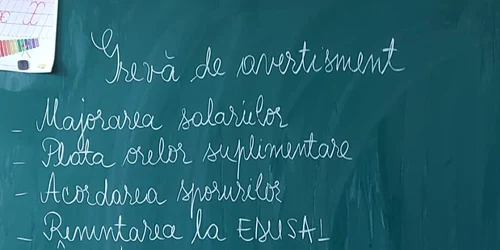 Grevă de avertisment
- Majorarea salariilor
- Plata orelor suplimentare
- Acordarea sporurilor
- Renuntarea la EDUSAL